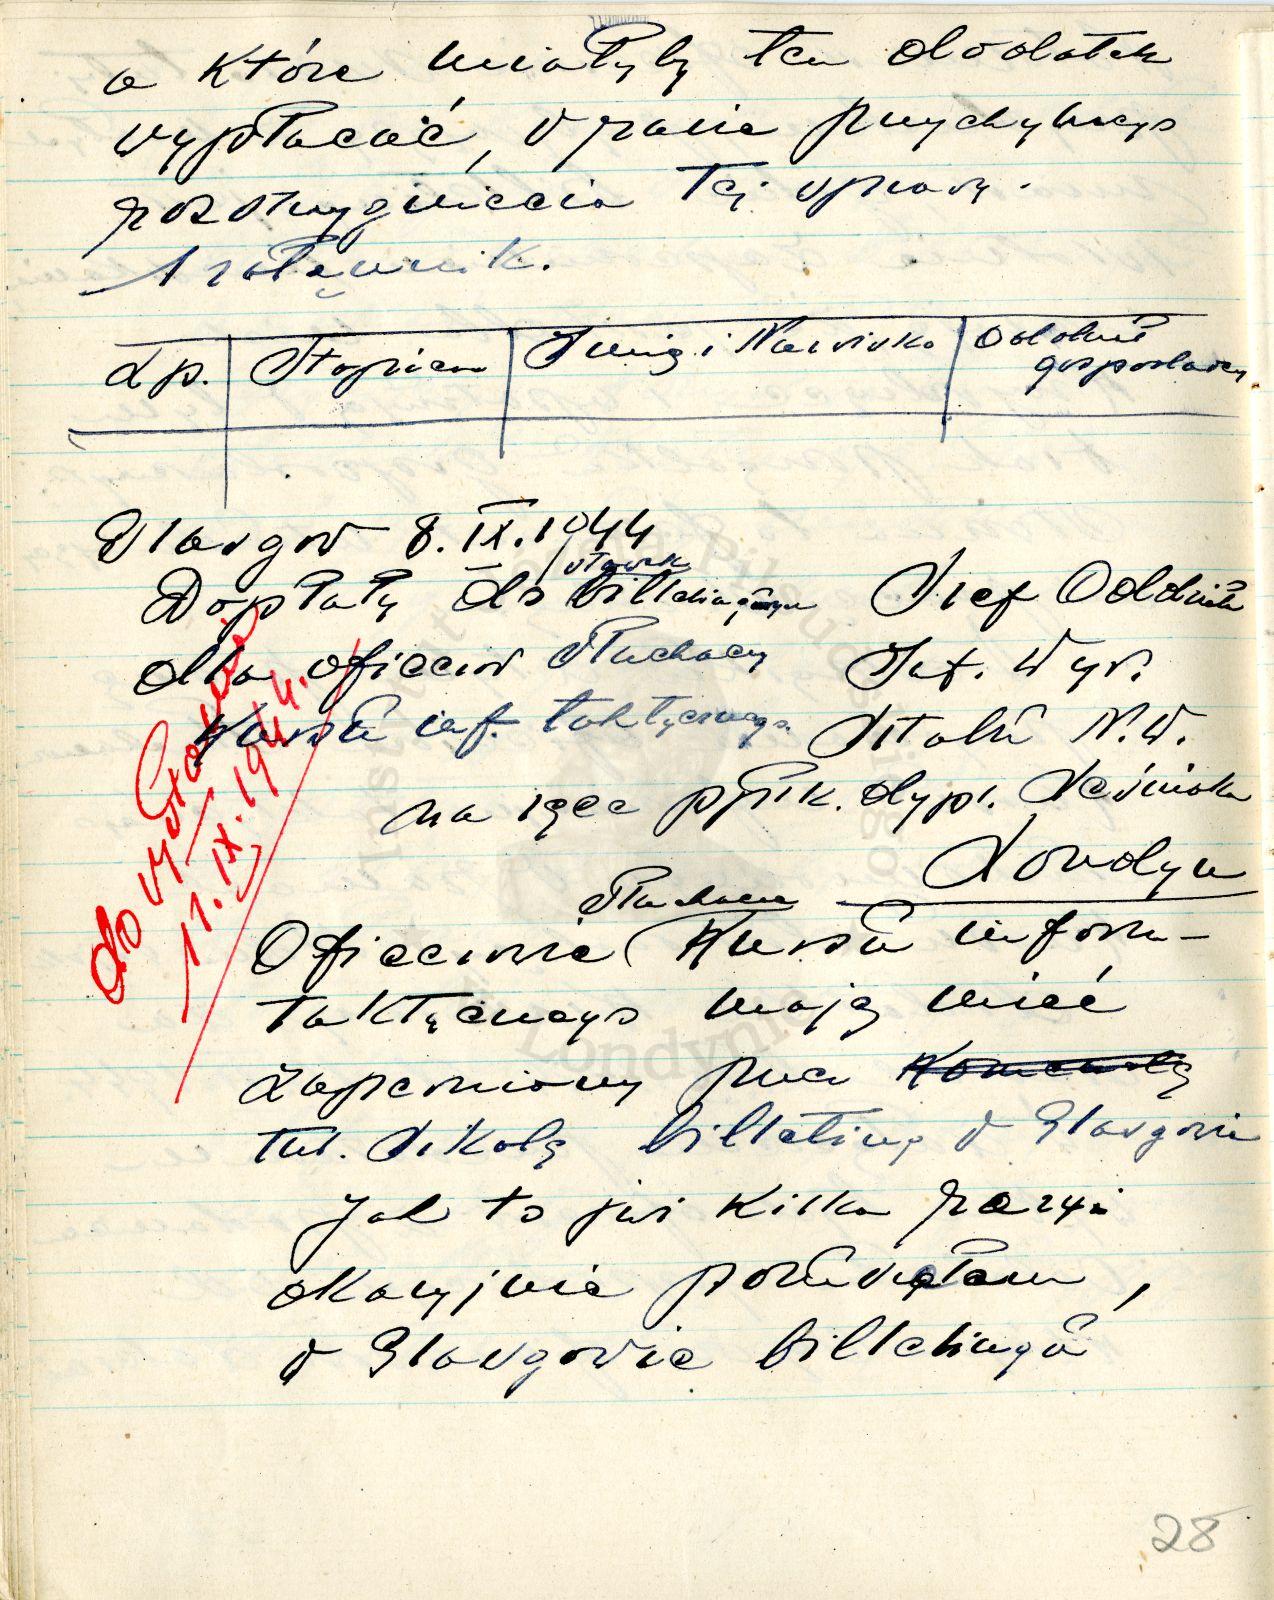 a które miałyby ten dodatek
wypłacać, w razie przychylnego
rozstrzygnięcia tej sprawy.
1 załącznik.
Lp. Stopień Imię i Nazwisko Oddział gospodarczy
Glasgow 8.IX.1944
Dopłaty do stawek billetingowych
dla oficerów słuchaczy
Kursu inf. taktycznego.
Szef Oddziału
Inf. Wyw.
Sztabu N.W.
na ręce ppłk. dypl.
Londyn
do wysłania
11.IX.1944.
Oficerowie słuchacze Kursu inform-
taktycznego mają mieć
zapewniony przez Komendę
tut. Szkołę billeting w Glasgowie
Jak to już kilka razy
okazyjnie poruszałem,
w Glasgowie billetingu
28